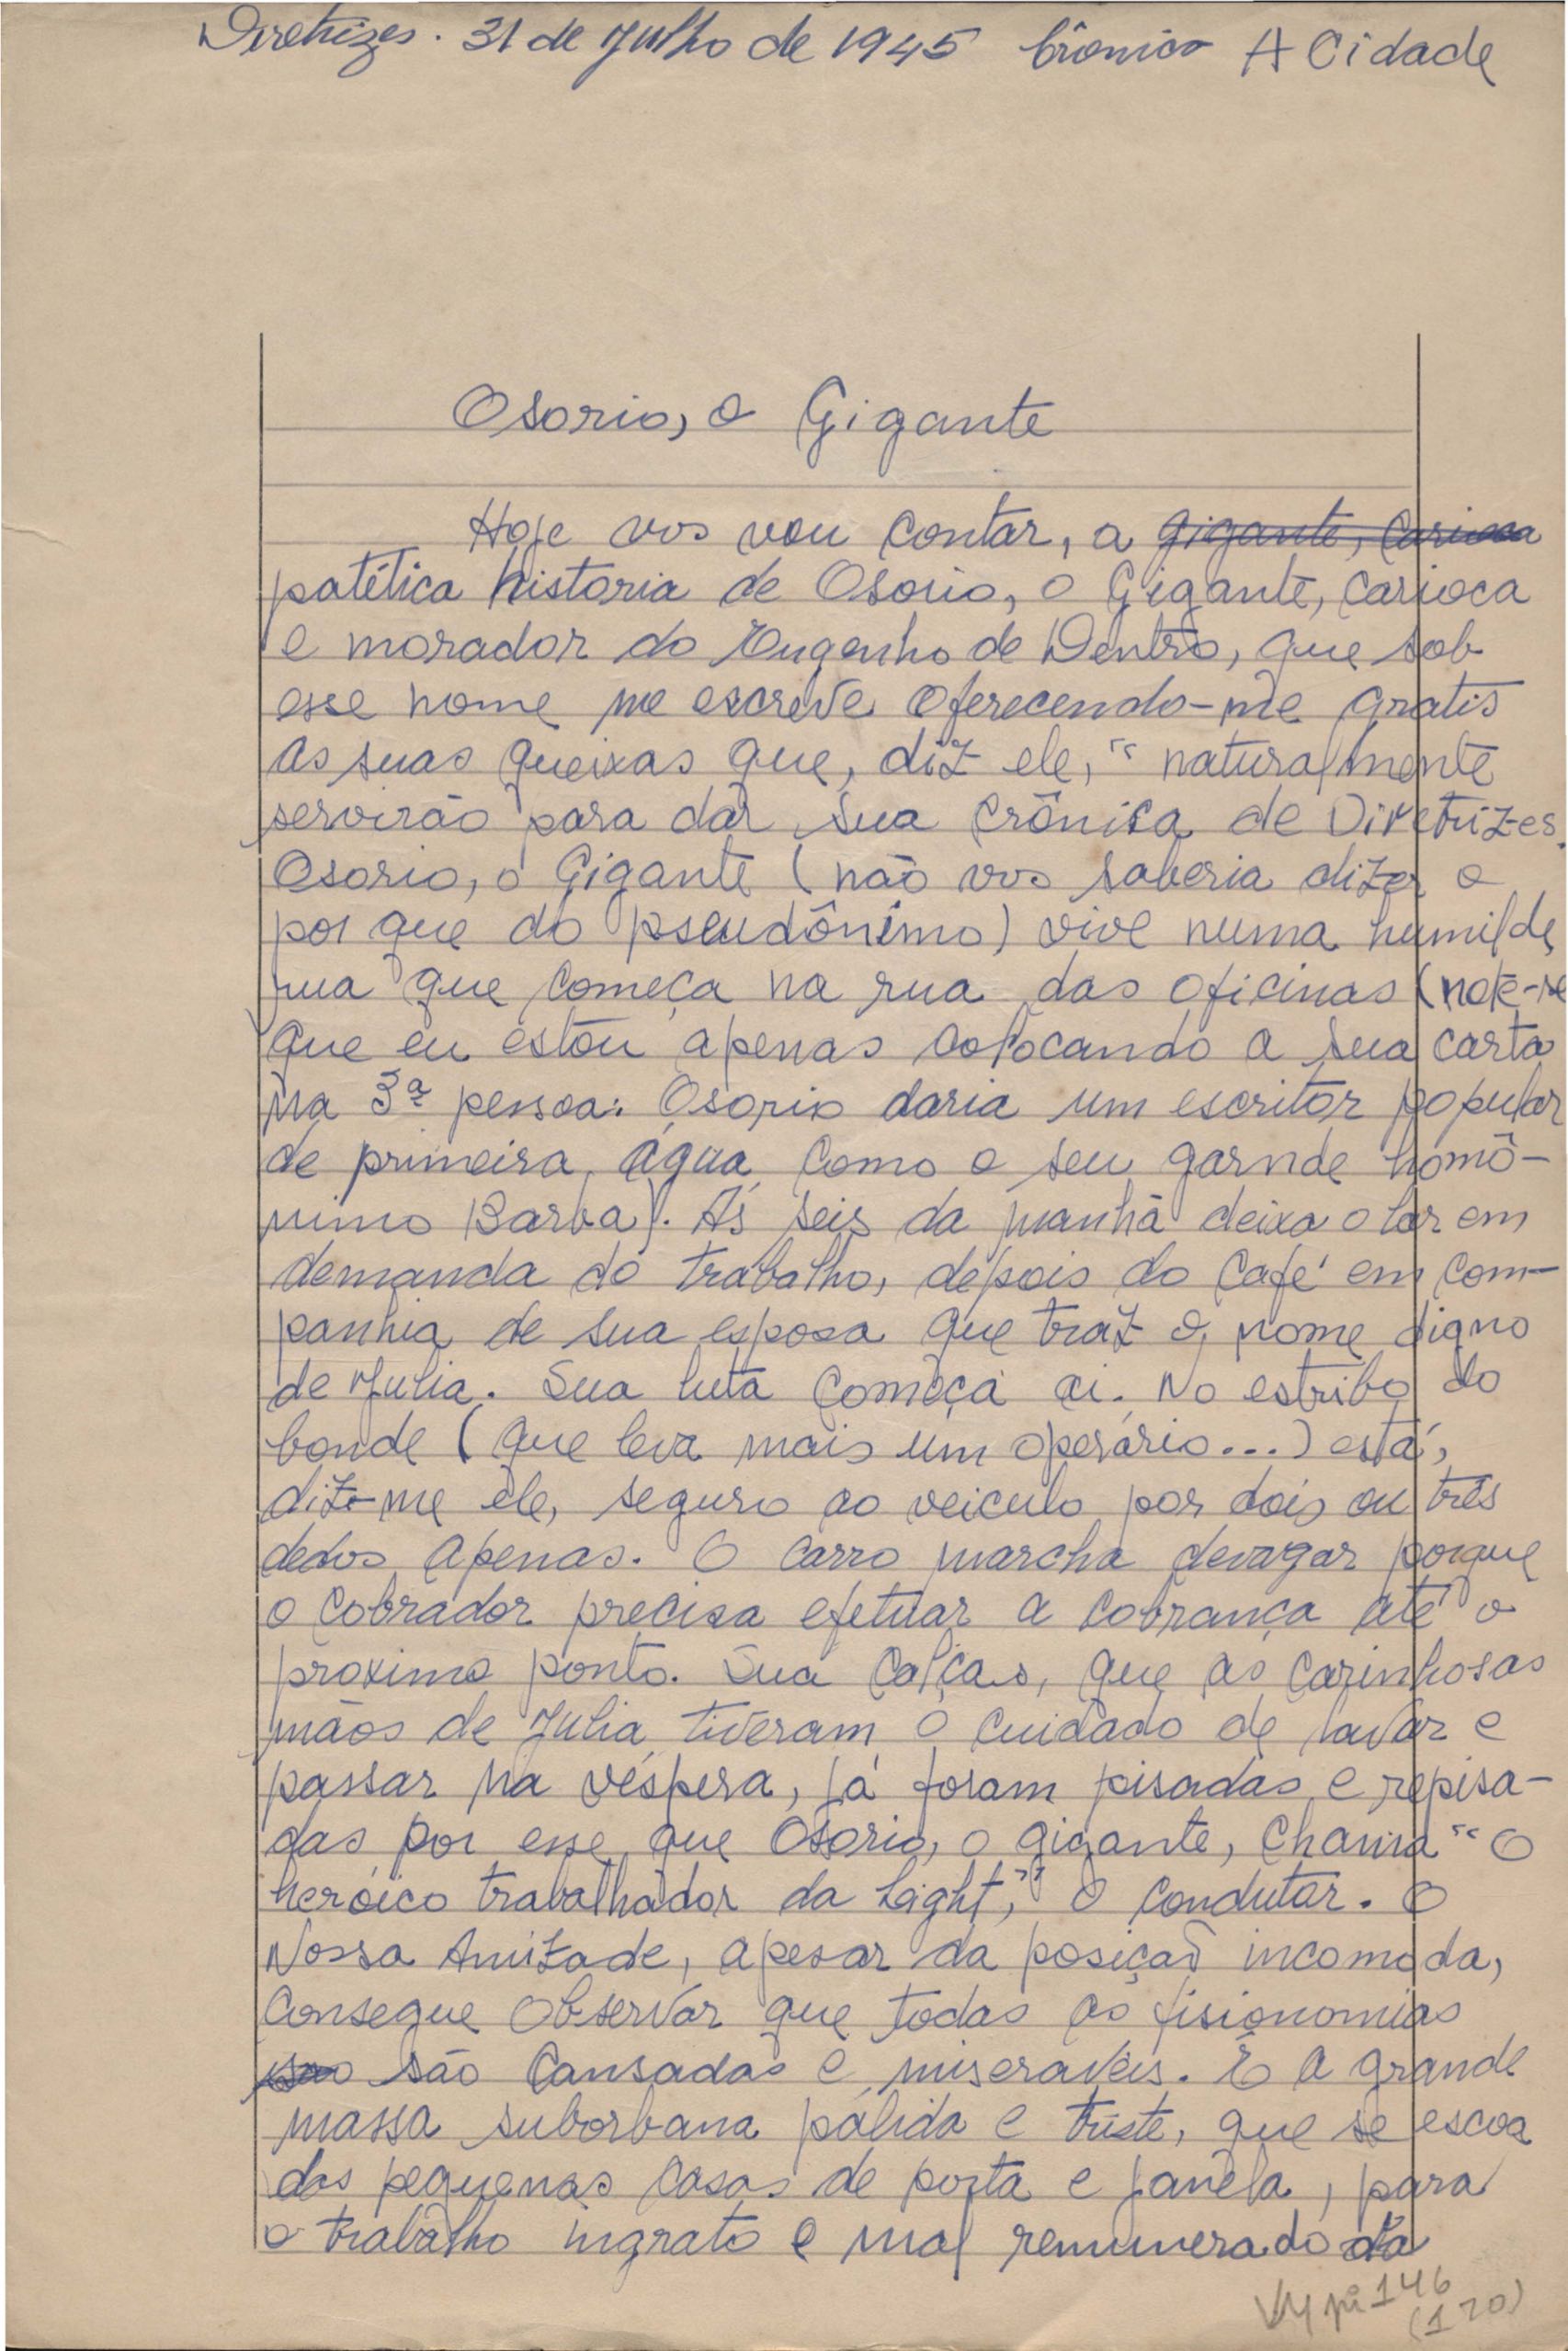 Diretrizes. 31 de Julho de 1945 Crônica A Cidade
Osorio, o Gigante
Hoje vos vou contar, a gigante, carioca
patética historia de Osorio, o Gigante, carioca
e morador do Engenho de Dentro, que sob
esse nome me escreve oferecendo-me gratis
as suas queixas que, diz ele, "naturalmente
servirão para dar sua crônica de Diretrizes.
Osorio, o Gigante (não vos saberia dizer o
por que do pseudônimo) vive numa humilde
rua que começa na rua das oficinas (note-se
que eu estou apenas colocando a sua carta
na 3ª pessoa: Osorio daria um escritor popular
de primeira, água como o seu garnde homô-
nimo Borba). Às seis da manhã deixa o lar em
demanda do trabalho, depois do café em com-
panhia de sua esposa que traz o nome digno
de Julia. Sua luta começa ai. No estribo do
bonde (que leva mais um operário...) está,
diz-me êle, seguro ao veiculo por dois ou três
dedos apenas. O carro marcha devagar porque
o cobrador precisa efetuar a cobrança até o
proximo ponto. Sua calças, que as carinhosas
mãos de Julia tiveram o cuidado de lavar e
passar na véspera, já foram pisadas e repisa-
das por esse que Osorio, o gigante, chama "O
heróico trabalhador da Light," o condutor. O
Nossa Amizade, apesar da posição incomoda,
consegue observar que todas as fisionomias
são são cansadas e miseraveis. E a grande
massa suborbana pálida e triste, que se escoa
das pequenas casas de porta e janela, para
o trabalho ingrato e mal remunerado da
VM pi 146
(170)